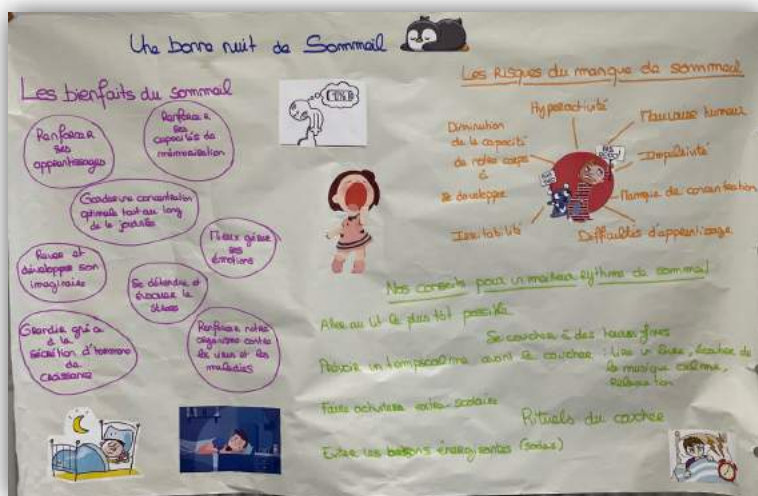 Une bonne nuit de Sommeil
Les bienfaits du sommeil
Renforcer
ses
apprentissages
Renforcer
ses
capacités de
mémorisation
Garder une concentration
optimale tout au long
de la journée
Mieux gérer
ses
émotions
Rêver et
développer son
imaginaire
Se détendre et
évacuer le
stress
Grandir grâce
à la
sécrétion d'hormone
de
croissance
Renforcer notre
organisme contre
les virus et les
maladies
Les Risques du manque de sommeil
Hyperactivité
Mauvaise humeur
Diminution
de la capacité
de notre corps
à
se développer
Impulsivité
Manque de concentration
Irritabilité
Difficultés d'apprentissage
Nos conseils pour un meilleur rythme de sommeil
Aller au lit le plus tôt possible
Se coucher à des heures fixes
Prévoir un temps calme avant le coucher : Lire un livre, écouter de
la musique calme,
Relaxation
Faire activités extra scolaire
Rituels du coucher
Eviter les boissons énergisantes (sodas)